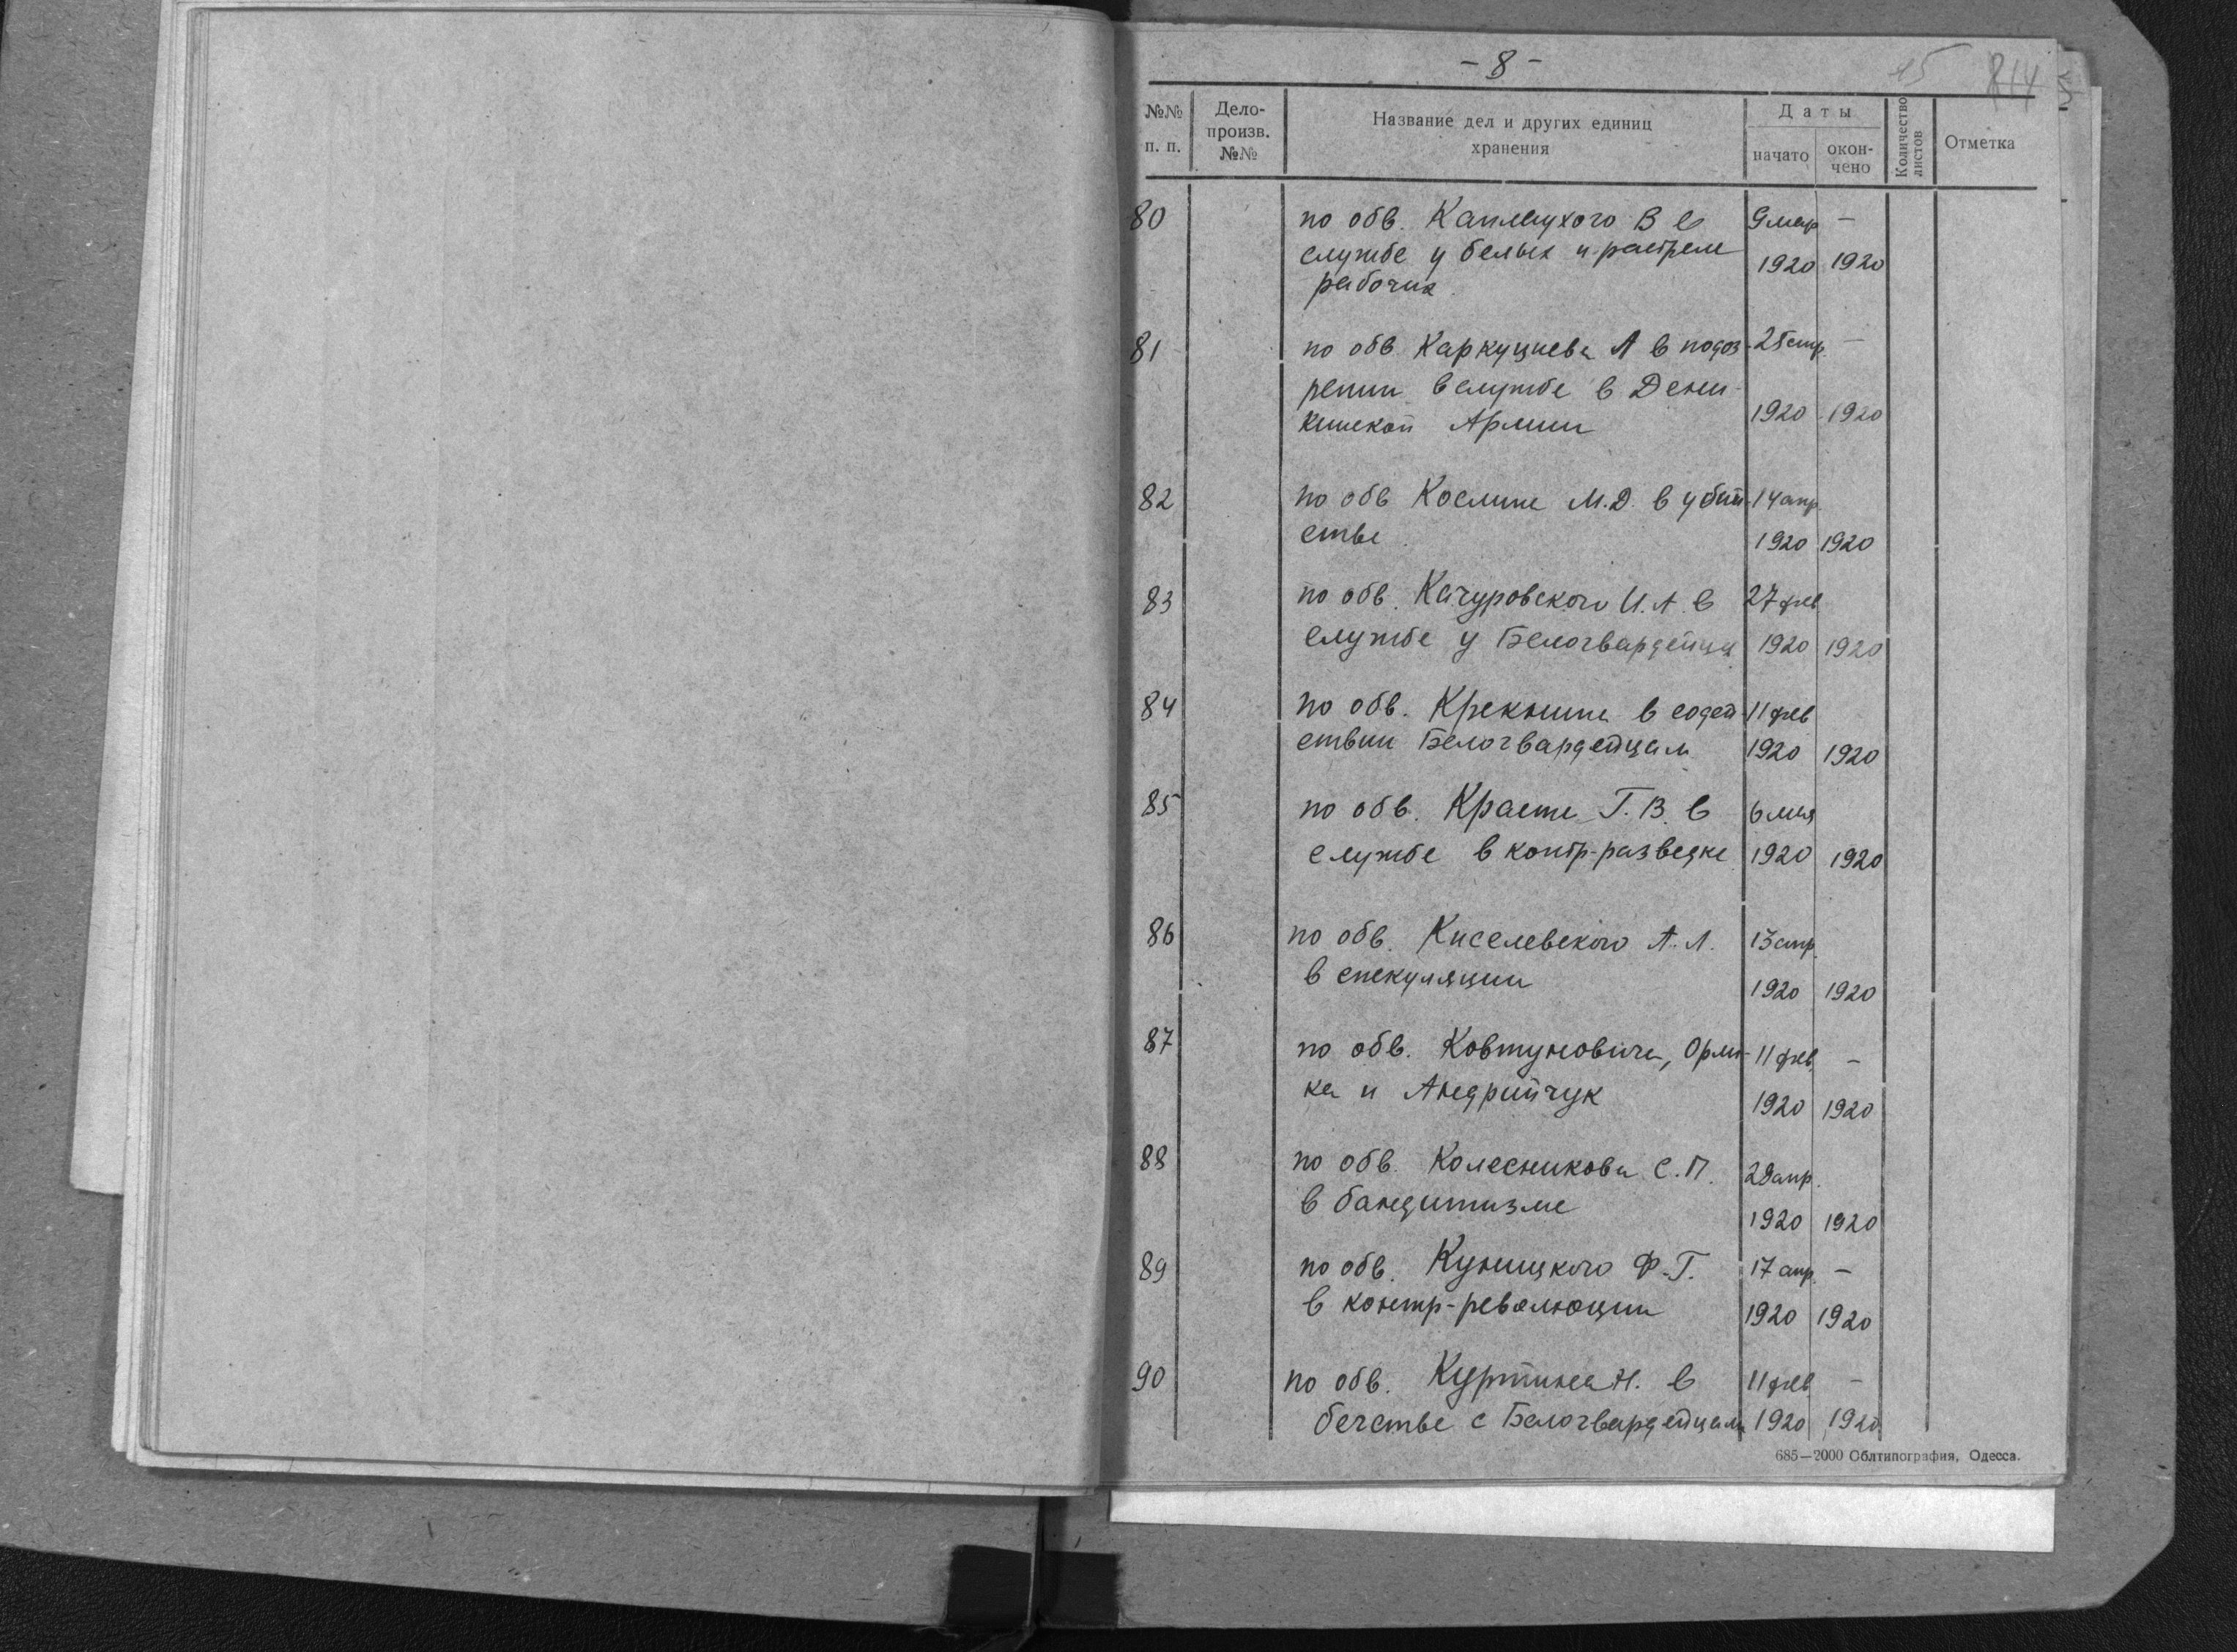 - 8 -
15
№№ п. п.
Дело-произв. №№
Название дел и других единиц хранения
Даты
начато
окон-чено
Количество листов
Отметка
80 по обв. Каплаухого В в 9 мар -
службе у белых и растреле 1920 1920
рабочих
81 по обв Каркуциева А в подоз- 25 апр. -
рении в службе в Дени-
кинской Армии 1920 1920
82 по обв Кослина М.Д. в убий- 14 апр.
стве. 1920 1920
83 по обв. Качуровского И.А. в 27 фев
службе у Белогвардейцах 1920 1920
84 по обв. Крекнина в содей- 11 фев
ствии Белогвардейцам 1920 1920
85 по обв. Красте Г.В. в 6 мая
службе в контр-разведке 1920 1920
86 по обв. Киселевского А.Л. 13 апр.
в спекуляции 1920 1920
87 по обв. Ковтуновича, Орли- 11 фев. -
ка и Андрийчук 1920 1920
88 по обв. Колесникова С.П. 28 апр.
в бандитизме 1920 1920
89 по обв. Куницкого Ф.Г. 17 апр. -
в контр-революции 1920 1920
90 по обв. Куртина Н. в 11 фев -
бегстве с Белогвардейцами 1920 1920
685—2000 Облтипография, Одесса.